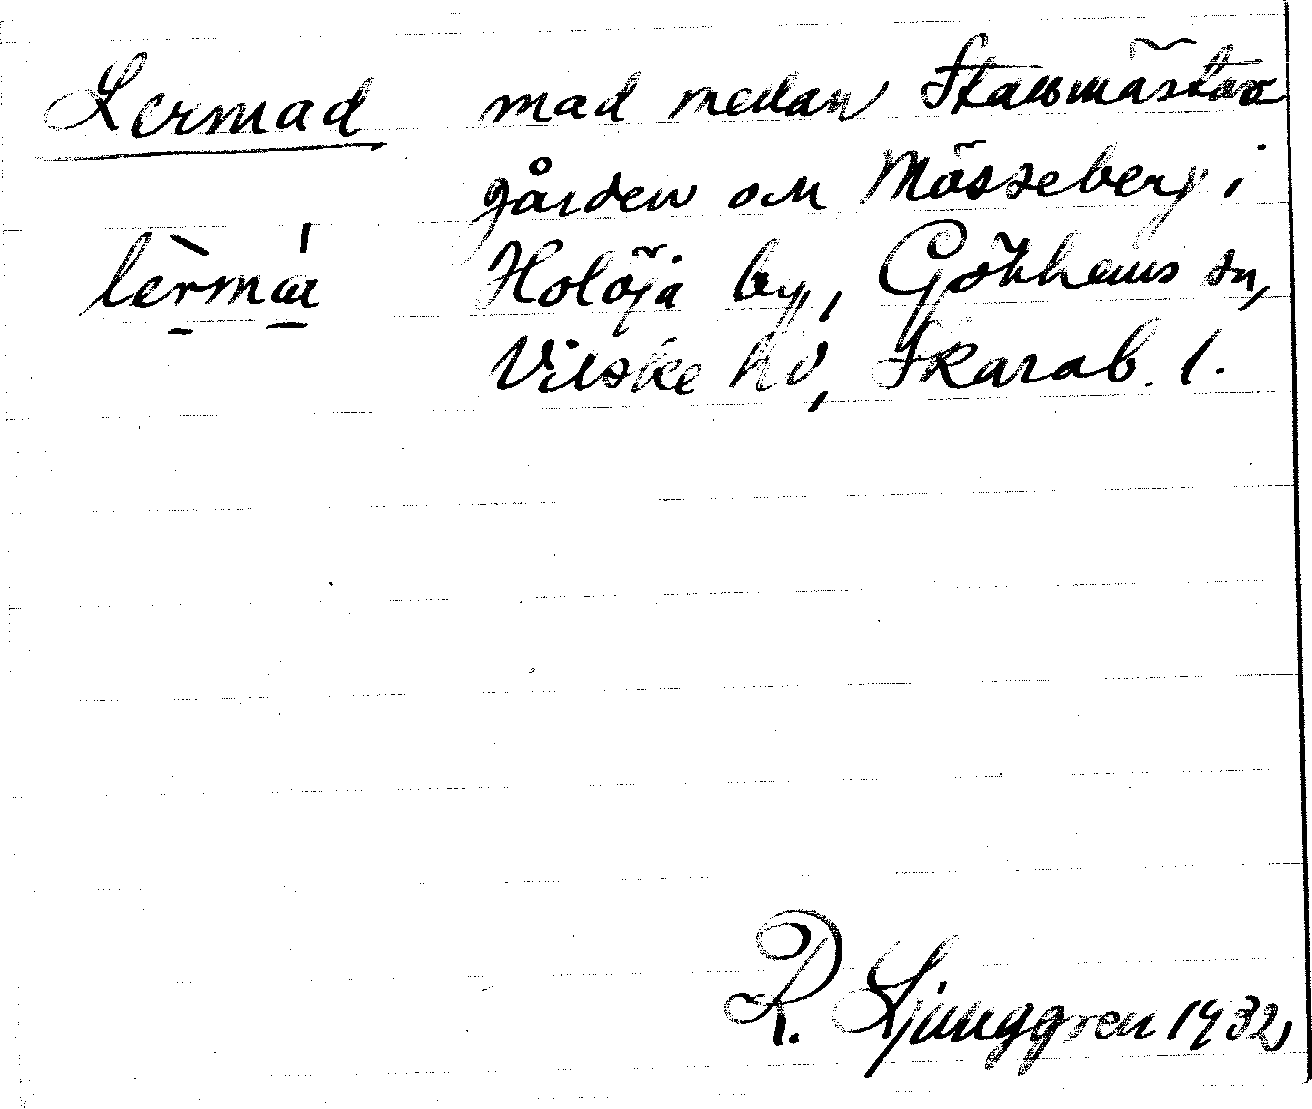 Lermad mad nedan Stallmästar
gården om Mösseberg i
lèrmár Holöja by, Gökhems sn,
Vilske hd, Skarab. l.
R. Ljunggren 1932